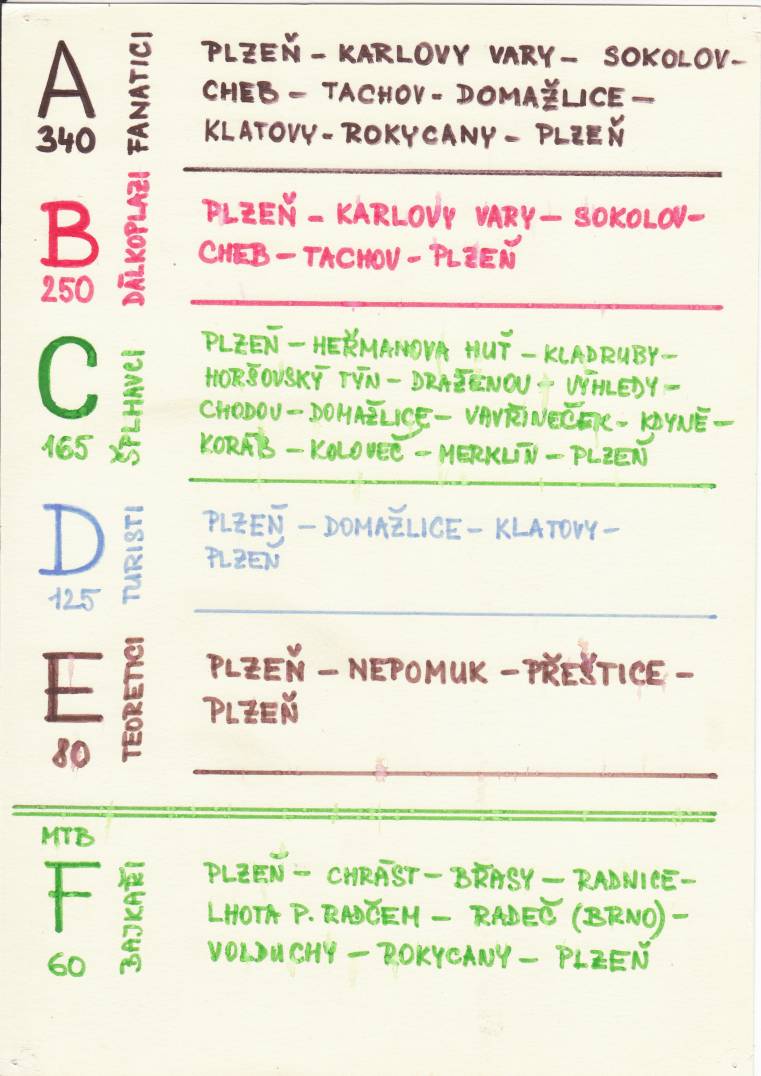 A
340
FANATICI
PLZEŇ - KARLOVY VARY - SOKOLOV-
CHEB - TACHOV - DOMAŽLICE -
KLATOVY - ROKYCANY - PLZEŇ
B
250
DÁLKOPLAZI
PLZEŇ - KARLOVY VARY - SOKOLOV-
CHEB - TACHOV - PLZEŇ
C
165
ŠPLHAVCI
PLZEŇ - HEŘMANOVA HUŤ - KLADRUBY-
HORŠOVSKÝ TÝN - DRAŽENOV - VÝHLEDY -
CHODOV - DOMAŽLICE - VAVŘINEČEK - KDYNĚ -
KORÁB - KOLOVEČ - MERKLÍN - PLZEŇ
D
125
TURISTI
PLZEŇ - DOMAŽLICE - KLATOVY -
PLZEŇ
E
80
TEORETICI
PLZEŇ - NEPOMUK - PŘEŠTICE -
PLZEŇ
MTB
F
60
BAJKAŘI
PLZEŇ - CHRÁST - BŘASY - RADNICE-
LHOTA P. RADČEM - RADEČ (BRNO) -
VOLDUCHY - ROKYCANY - PLZEŇ